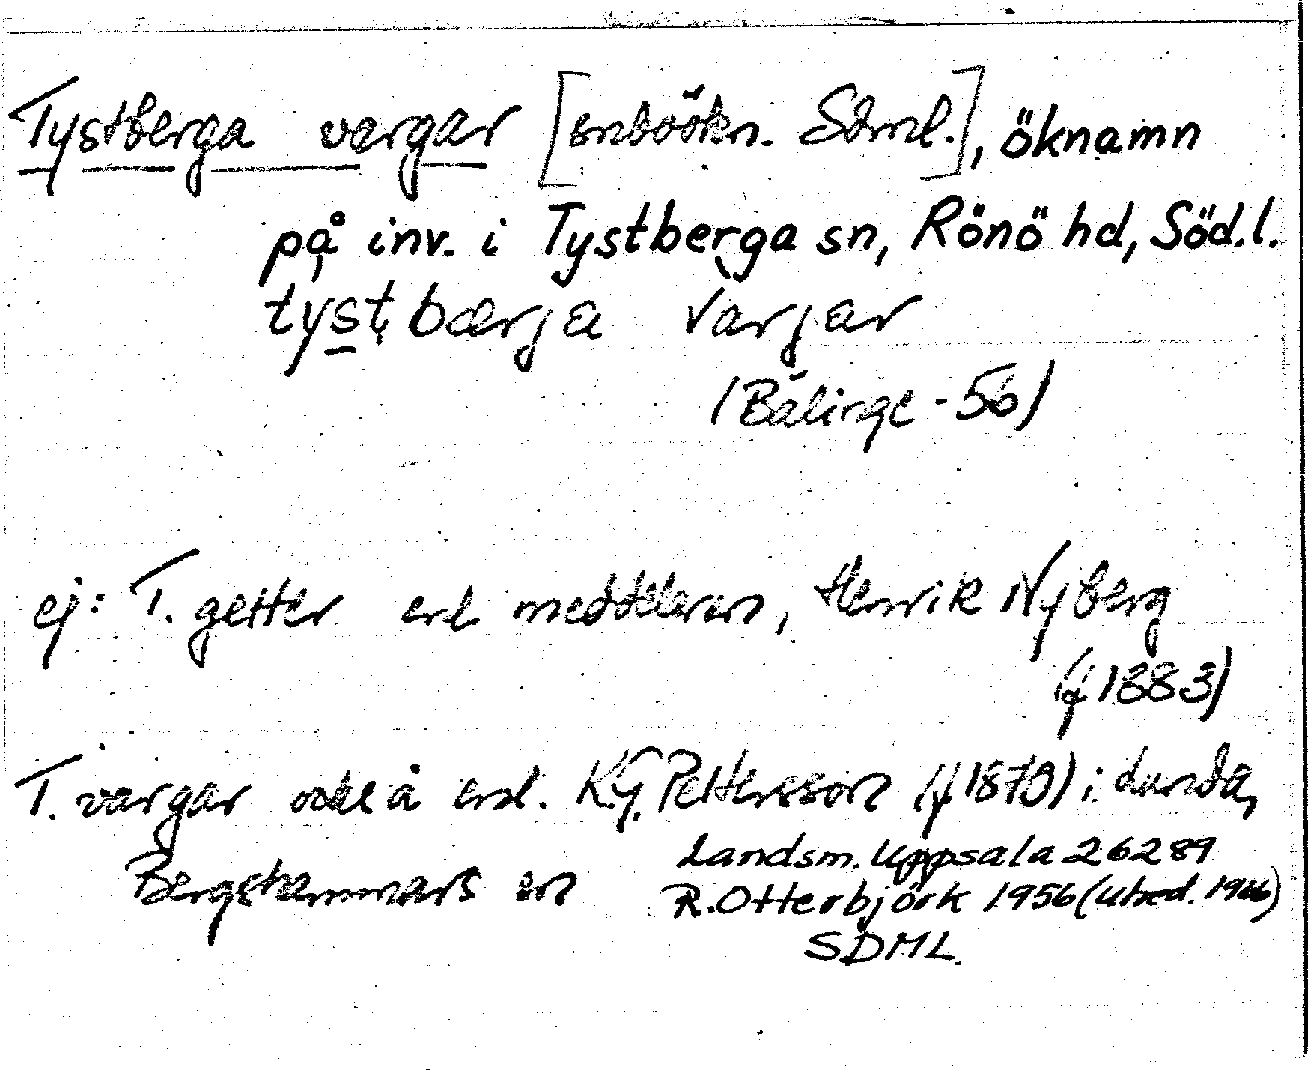 Tystberga vargar [snboökn. Sdml.], öknamn
på inv. i Tystberga sn, Rönö hd, Söd.l.
tystbærja varjar
(Bälinge -56)
ej: T. getter enl. meddelaren, Henrik Nyberg
(f 1883)
T. vargar också enl. K.G. Pettersson (f 1870) i Lunda,
Bergshammars sn
Landsm. Uppsala 26289
R. Otterbjörk 1956 (utred. 1966)
SDML.